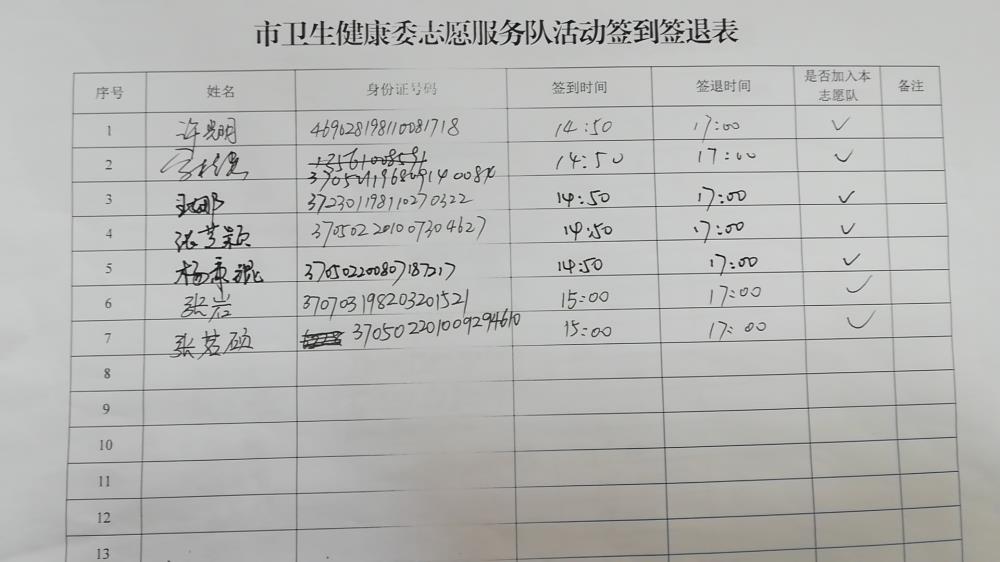 市卫生健康委志愿服务队活动签到签退表
序号 姓名 身份证号码 签到时间 签退时间 是否加入本志愿队 备注
1 许光明 469628198110081718 14:50 17:00 ✓
2 14:50 17:00 ✓
37052119680914008X
3 372301198110270322 14:50 17:00 ✓
4 370502201007304627 14:50 17:00 ✓
5 370502200807187217 14:50 17:00 ✓
6 张岩 370703198203201521 15:00 17:00 ✓
7 张茗硕 370502201009294610 15:00 17:00 ✓
8
9
10
11
12
13